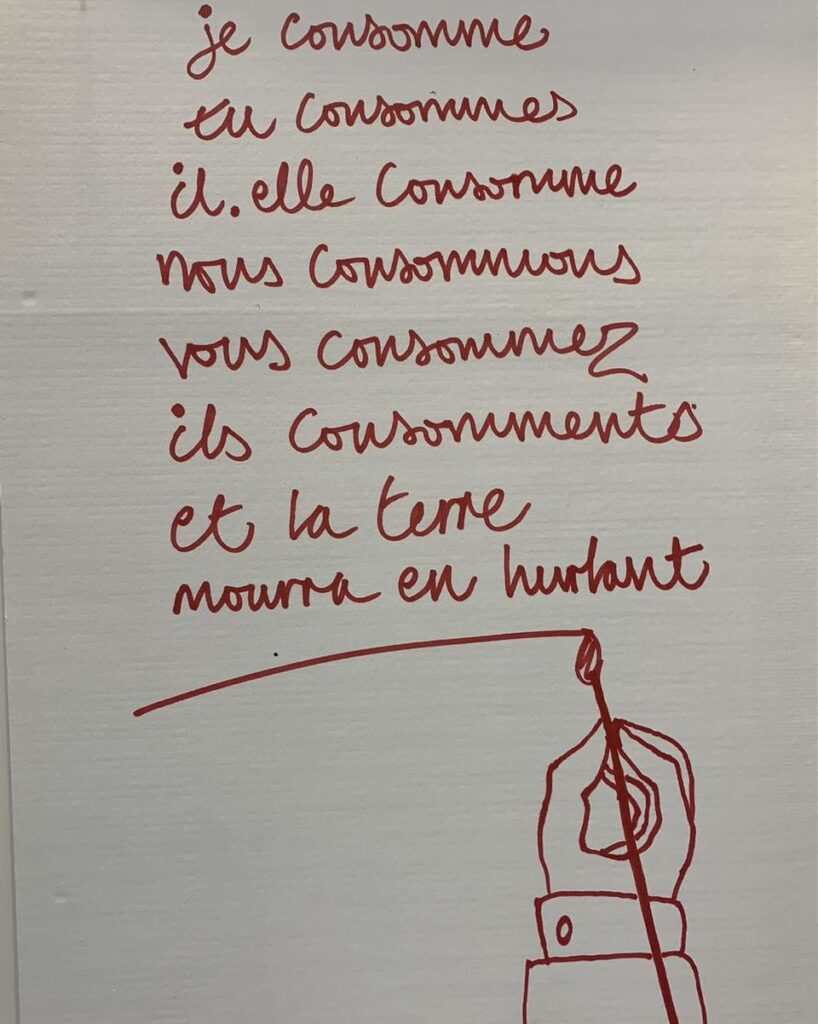 je consomme
tu consommes
il.elle consomme
nous consommons
vous consommez
ils consomments
et la terre
mourra en hurlant